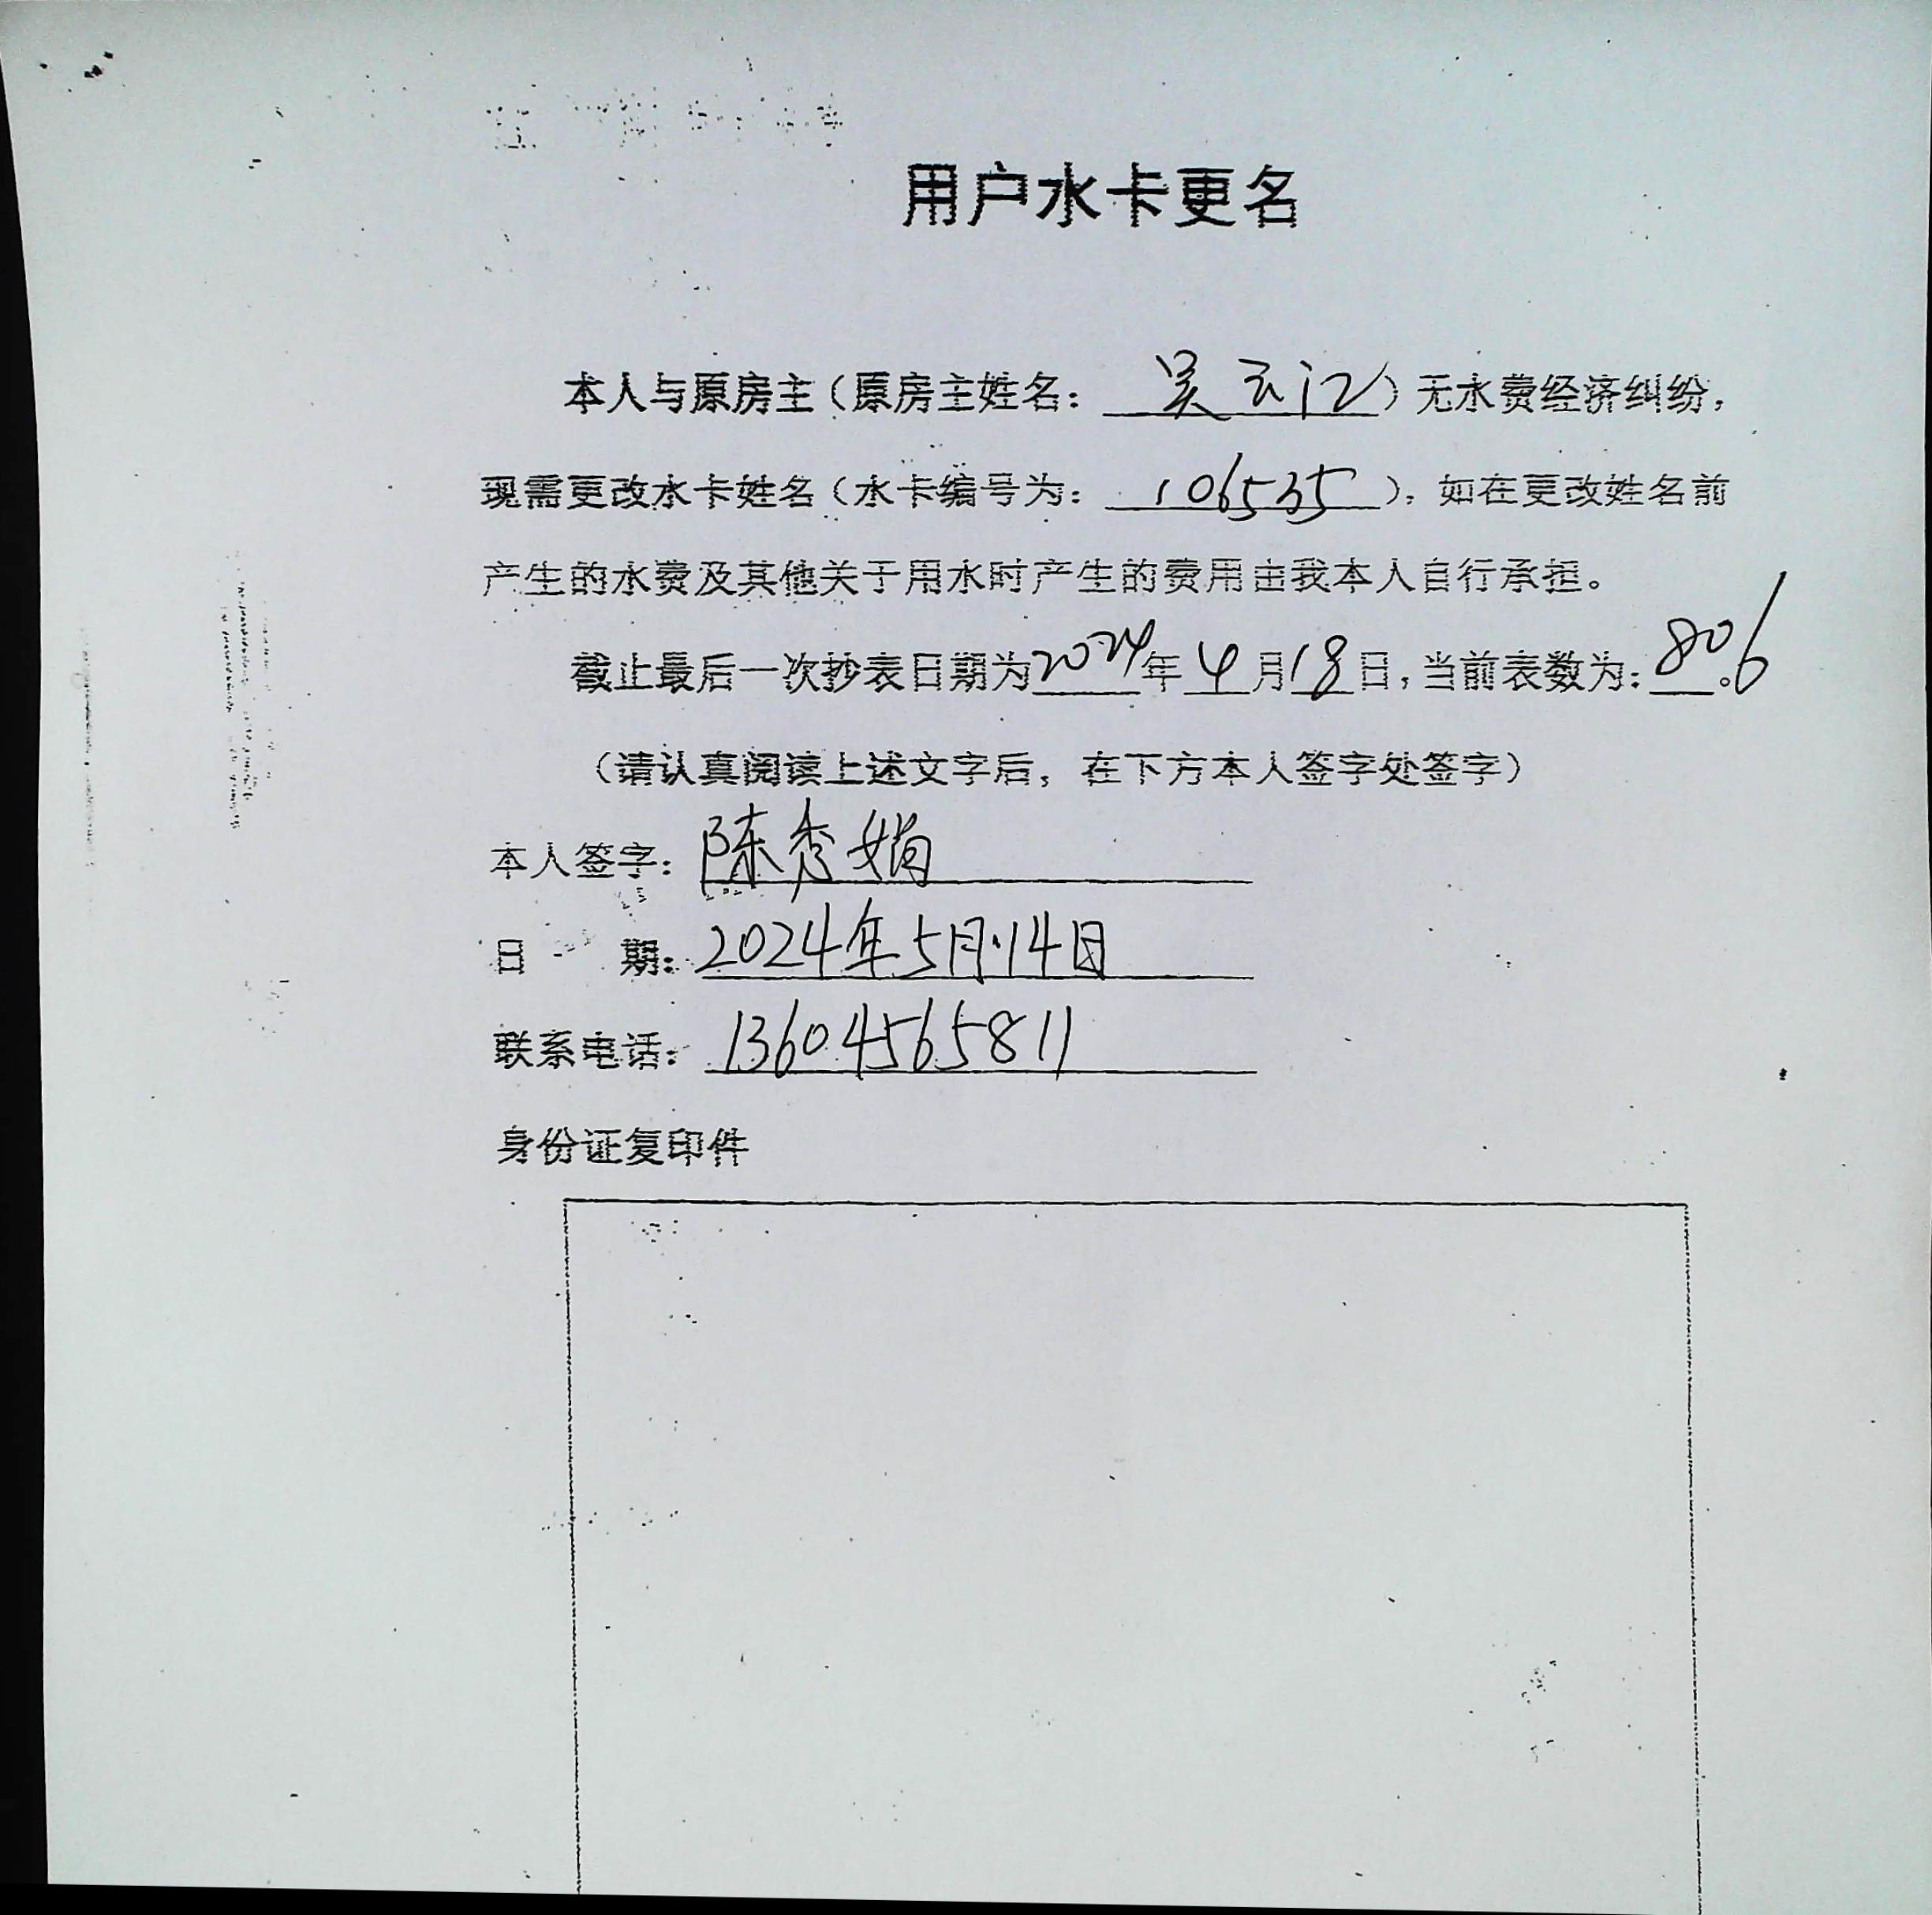 用户水卡更名
本人与原房主（原房主姓名：吴云江）无水费经济纠纷，
现需更改水卡姓名（水卡编号为：106535），如在更改姓名前
产生的水费及其他关于用水时产生的费用由我本人自行承担。
截止最后一次抄表日期为2024年4月18日，当前表数为：806。
（请认真阅读上述文字后，在下方本人签字处签字）
本人签字：陈秀娟
日 期：2024年5月14日
联系电话：13604565811
身份证复印件